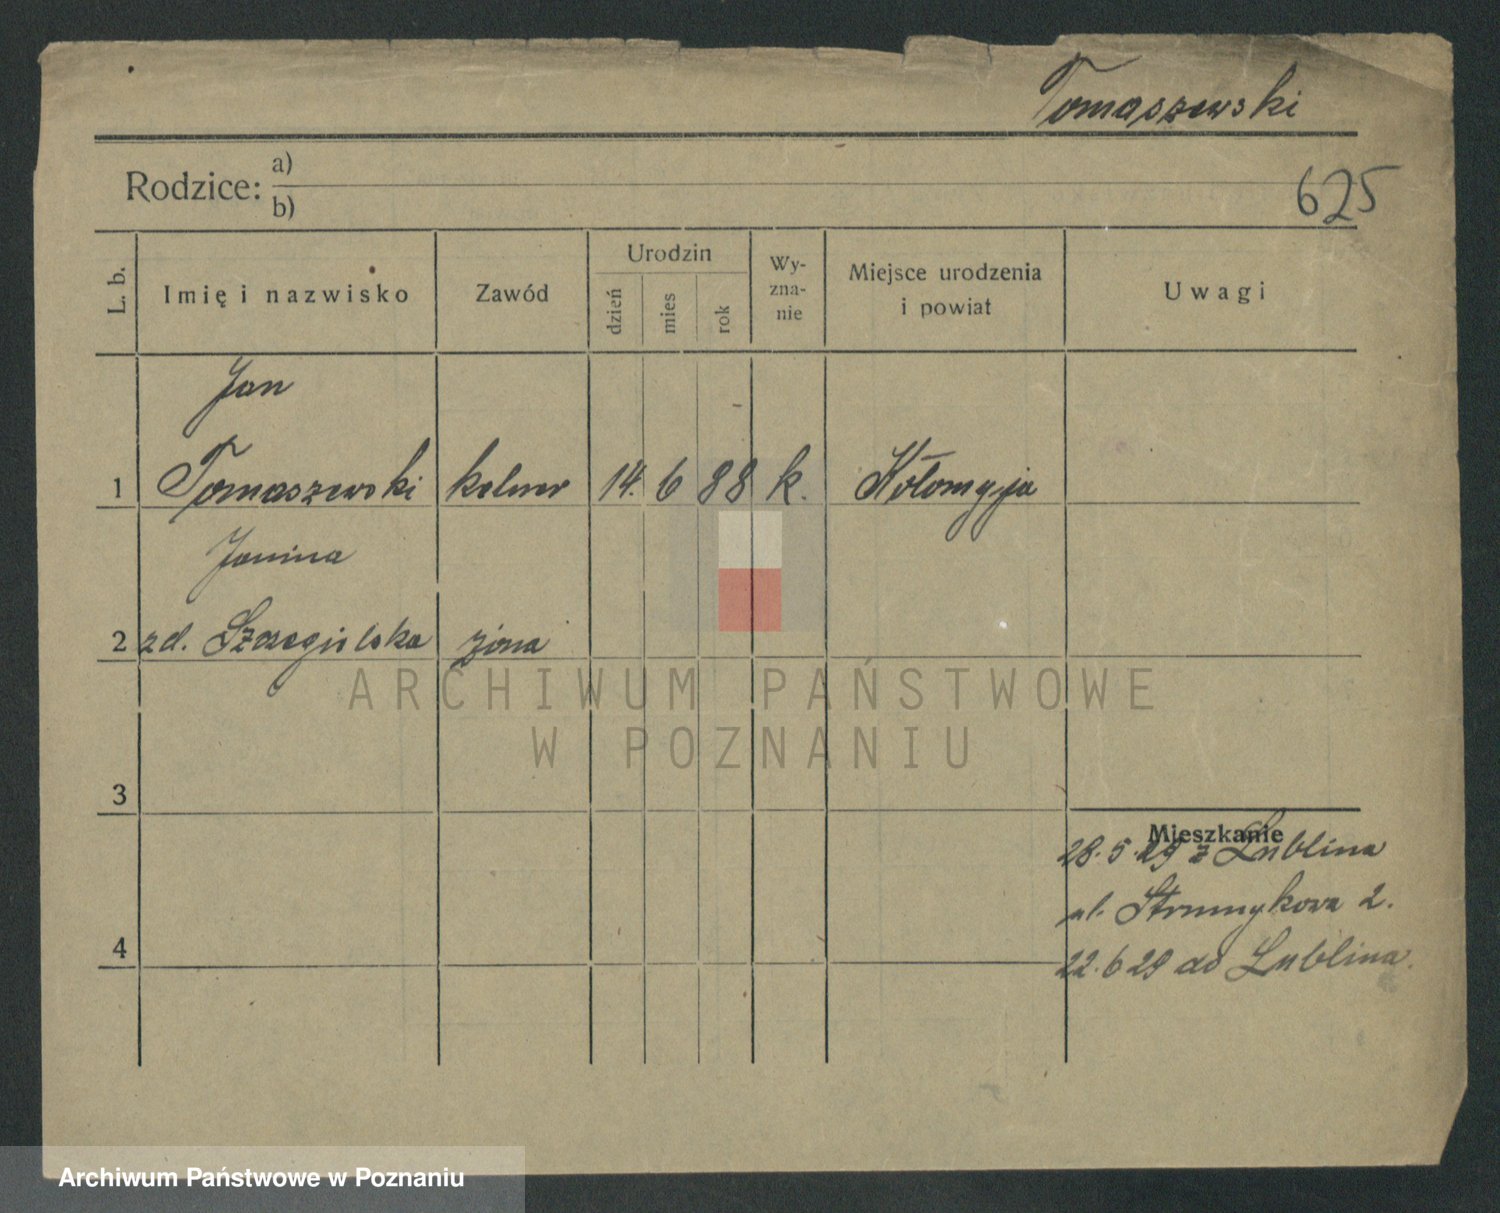 Tomaszewski
625
Rodzice: a)
b)
L. b.
Imię i nazwisko
Zawód
Urodzin
dzień
mies
rok
Wy-
zna-
nie
Miejsce urodzenia
i powiat
Uwagi
Jan
1 Tomaszewski kelner 14. 6 88 k. Kołomyja
Janina
2 zd. żona
ARCHIWUM PAŃSTWOWE
W POZNANIU
3
Mieszkanie
28.5.29 z Lublina
ul. Strumykowa 2.
4
22.6 29 do Lublina.
Archiwum Państwowe w Poznaniu